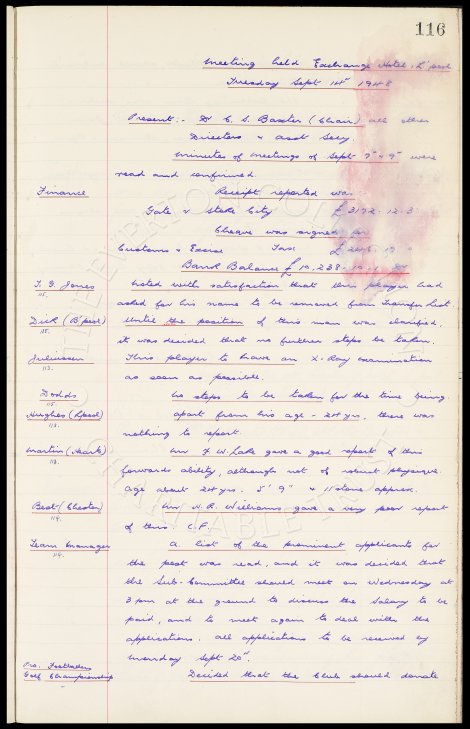 116
Meeting held Exchange Hotel, L'pool
Tuesday Sept 14th 1948
Present:- Dr C. S. Baxter (Chair) all other
Directors & Asst Secy.
Minutes of meetings of Sept 7th & 9th were
read and confirmed.
Finance
Receipt reported was
Gate v Stoke City £3192. 12. 3
Cheque was signed for
Customs & Excise Tax
Bank Balance £19,238
T. G. Jones
115.
Noted with satisfaction that this player had
asked for his name to be removed from Transfer List.
Dick (B'pool)
115.
Until the position of this man was clarified,
it was decided that no further steps be taken.
Juliussen
113.
This player to have an X-Ray examination
as soon as possible.
Dodds
115.
No steps to be taken for the time being.
Hughes (L'pool)
113.
Apart from his age - 24 yrs, there was
nothing to report.
Martin (Hearts)
113.
Mr F. W. Lake gave a good report of this
forwards ability, although not of robust physique.
Age about 24 yrs. 5' 9" & 11 stone approx.
Best (Chester)
114.
Mr H. R. Williams gave a very poor report
of this C.F.
Team Manager
114.
A list of the prominent applicants for
the post was read, and it was decided that
the Sub-Committee should meet on Wednesday at
3 pm at the ground to discuss the Salary to be
paid, and to meet again to deal with the
applications. All applications to be received by
Monday Sept 20th.
Pro. Footballers
Golf Championship
Decided that the Club should donate